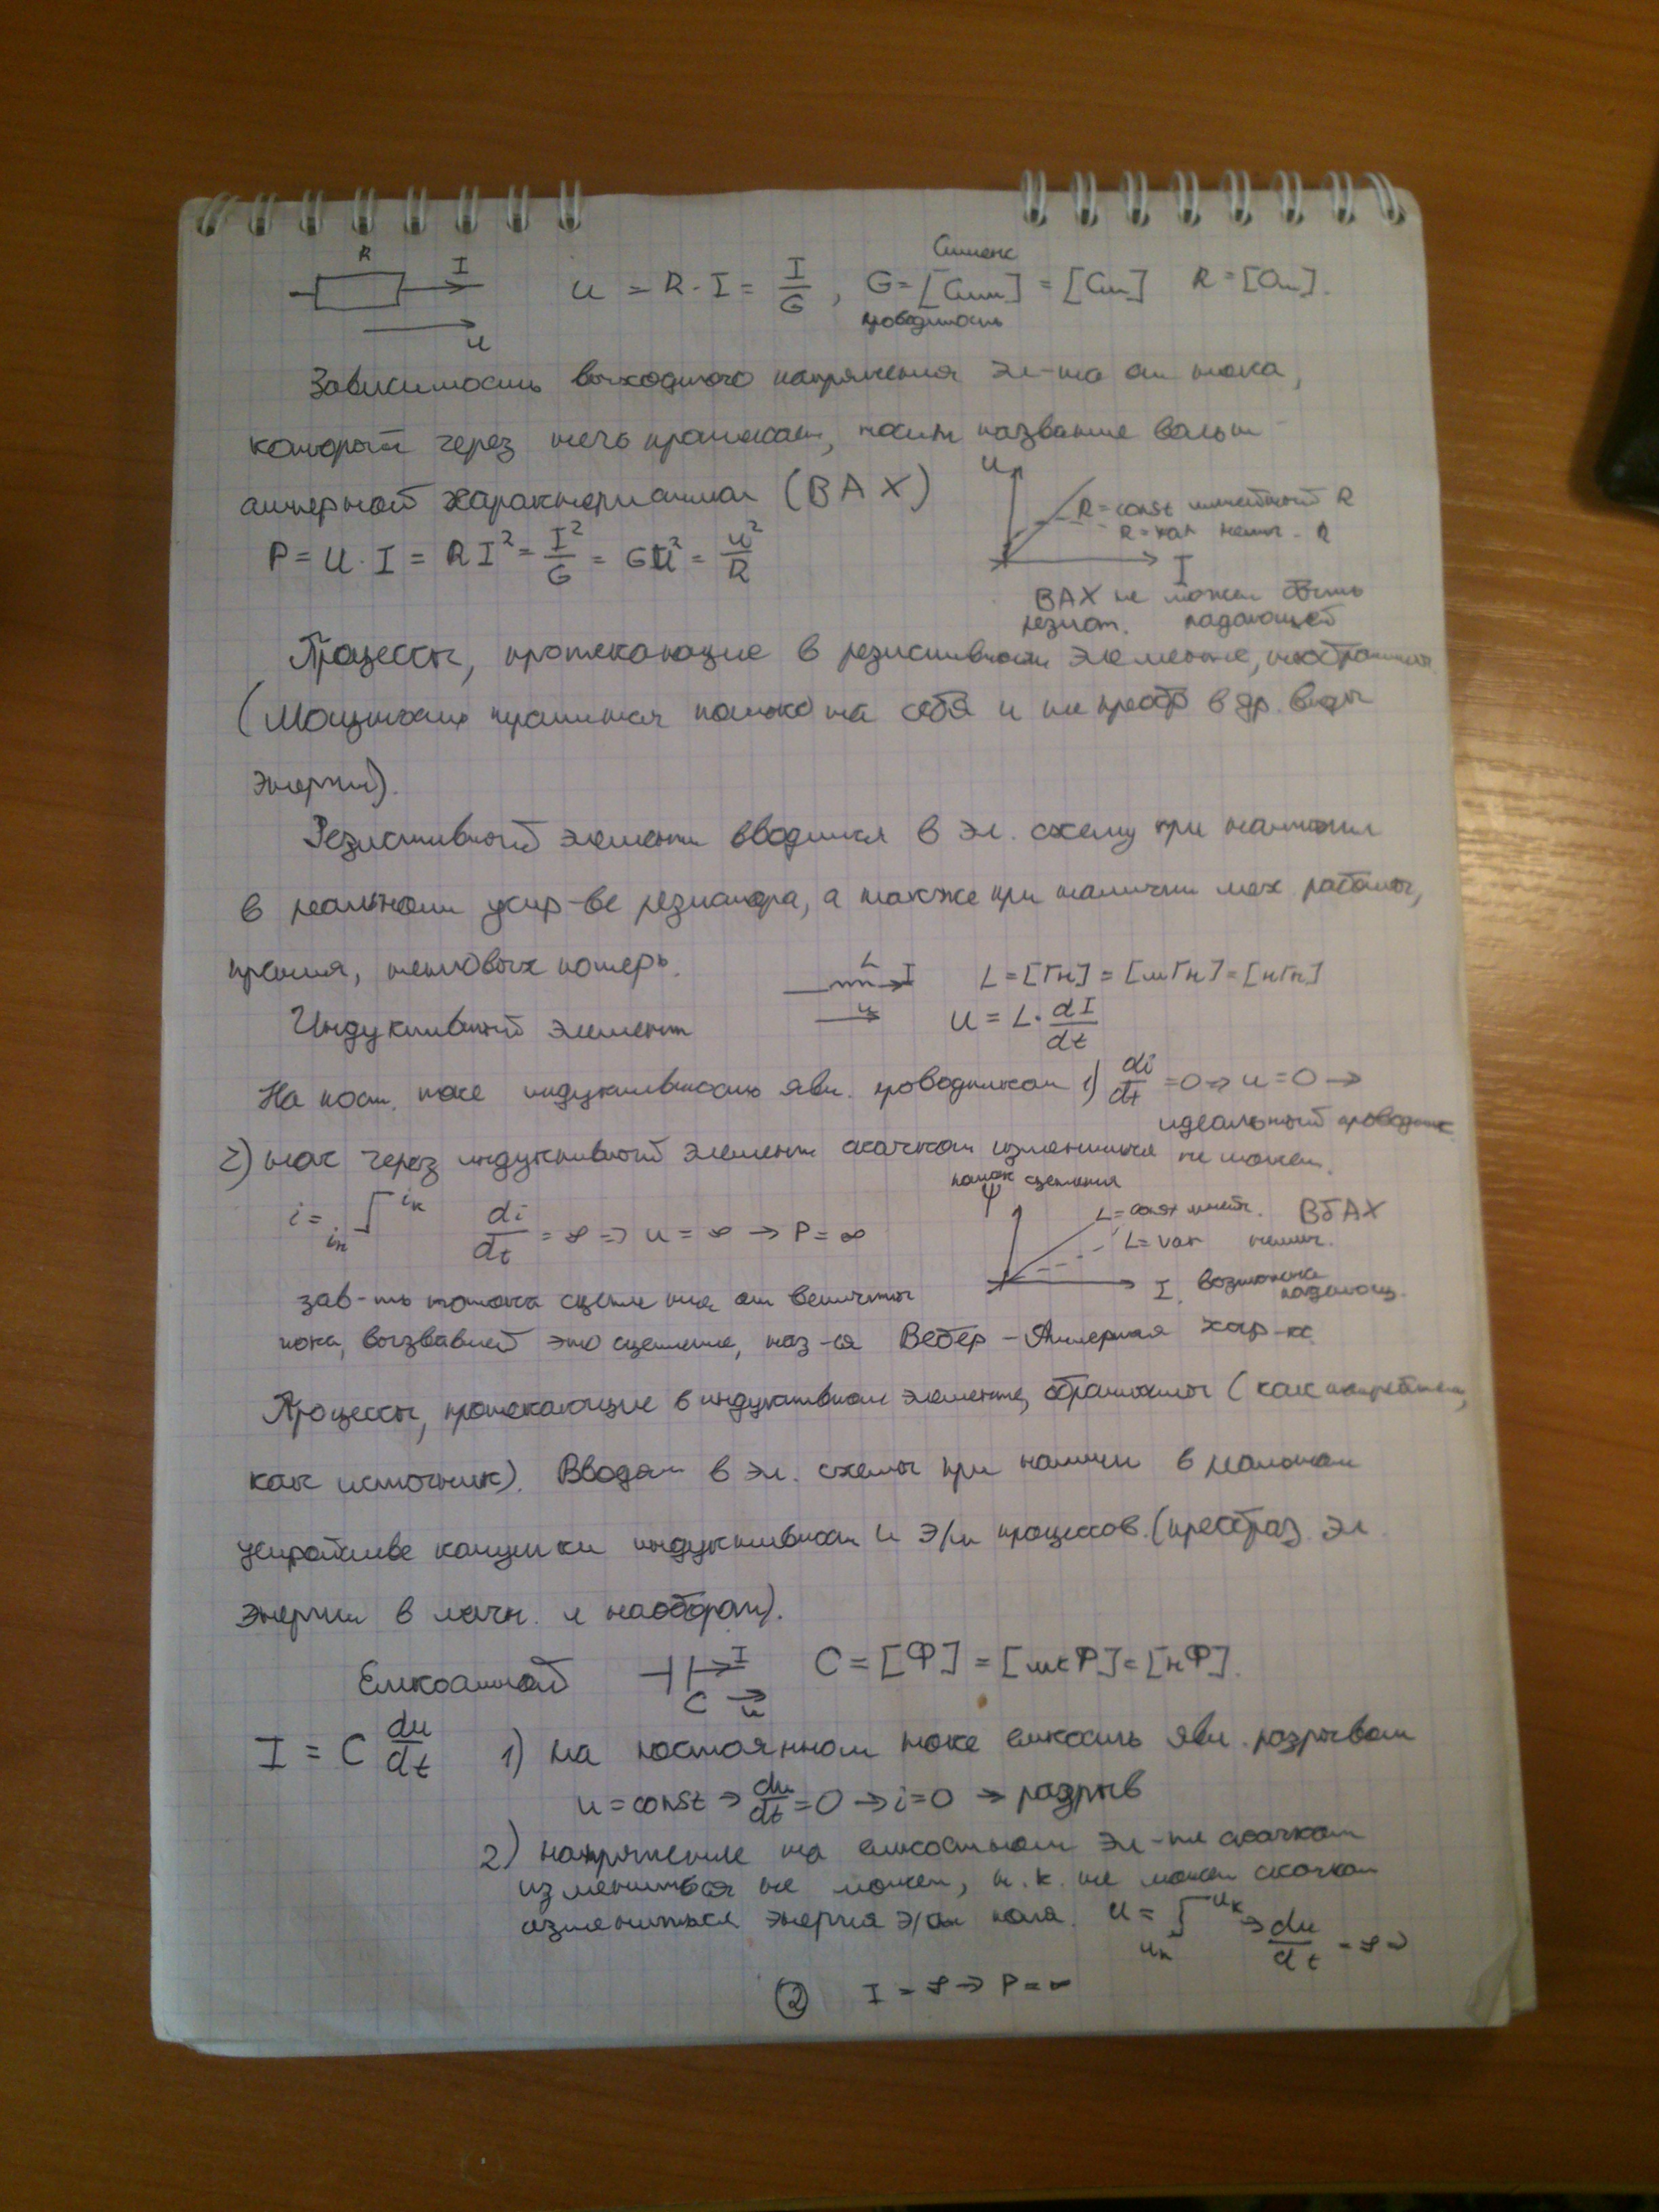 R
I
u
u = R·I = I/G, G=[Сим] = [См] R=[Ом].
Сименс
проводимость
Зависимость выходного напряжения эл-та от тока,
который через него протекает, носит название вольт
амперной характеристики (ВАХ)
u
R=const линейный R
R=var нелин. R
I
P = U·I = RI² = I²/G = GU² = u²/R
ВАХ не может быть
резист. падающей
Процессы, протекающие в резистивном элементе, необратимы
(Мощность тратится только на себя и не преобр в др. виды
энергии).
Резистивный элемент вводится в эл. схему при наличии
в реальном устр-ве резистора, а также при наличии мех работы,
трения, тепловых потерь.
L I
u
L=[Гн] = [мГн]=[нГн]
Индуктивный элемент
u = L·dI/dt
На пост. токе индуктивность явл. проводником 1) di/dt =0 ⇒ u=0 →
идеальный проводник
2) ток через индуктивный элемент скачком измениться не может.
поток сцепления
i= iн ∫ iк di/dt = ∞ ⇒ u = ∞ → P = ∞
Ψ
L=const линейн. ВбАХ
L=var нелин.
I возможна
падающ.
зав-ть потока сцепления от величины
тока, вызвавшей это сцепление, наз-ся Вебер-Амперная хар-ка
Процессы, протекающие в индуктивном элементе, обратимы (как потребитель,
как источник). Вводят в эл. схемы при наличии в реальном
устройстве катушки индуктивности и э/м процессов. (преобраз. эл.
энергии в магн. и наоборот).
Емкостной
I
C u
C = [Ф] = [мкФ] = [нФ].
I = C du/dt 1) на постоянном токе емкость явл. разрывом
u=const ⇒ du/dt =0 → i=0 → разрыв
2) напряжение на емкостном эл-те скачком
измениться не может, т.к. не может скачком
измениться энергия поля. u = uн ∫ uк ⇒ du/dt = ∞ ⇒
② I = ∞ → P = ∞